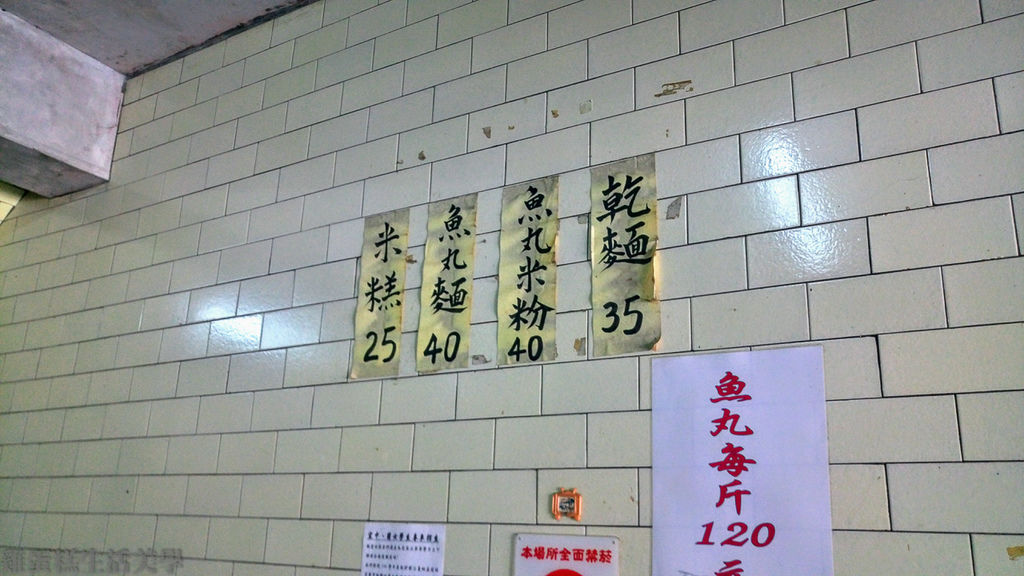 乾麵
35
魚丸米粉
40
魚丸麵
40
米糕
25
魚丸每斤
120
元
本場所全面禁菸
雞蛋糕生活美學